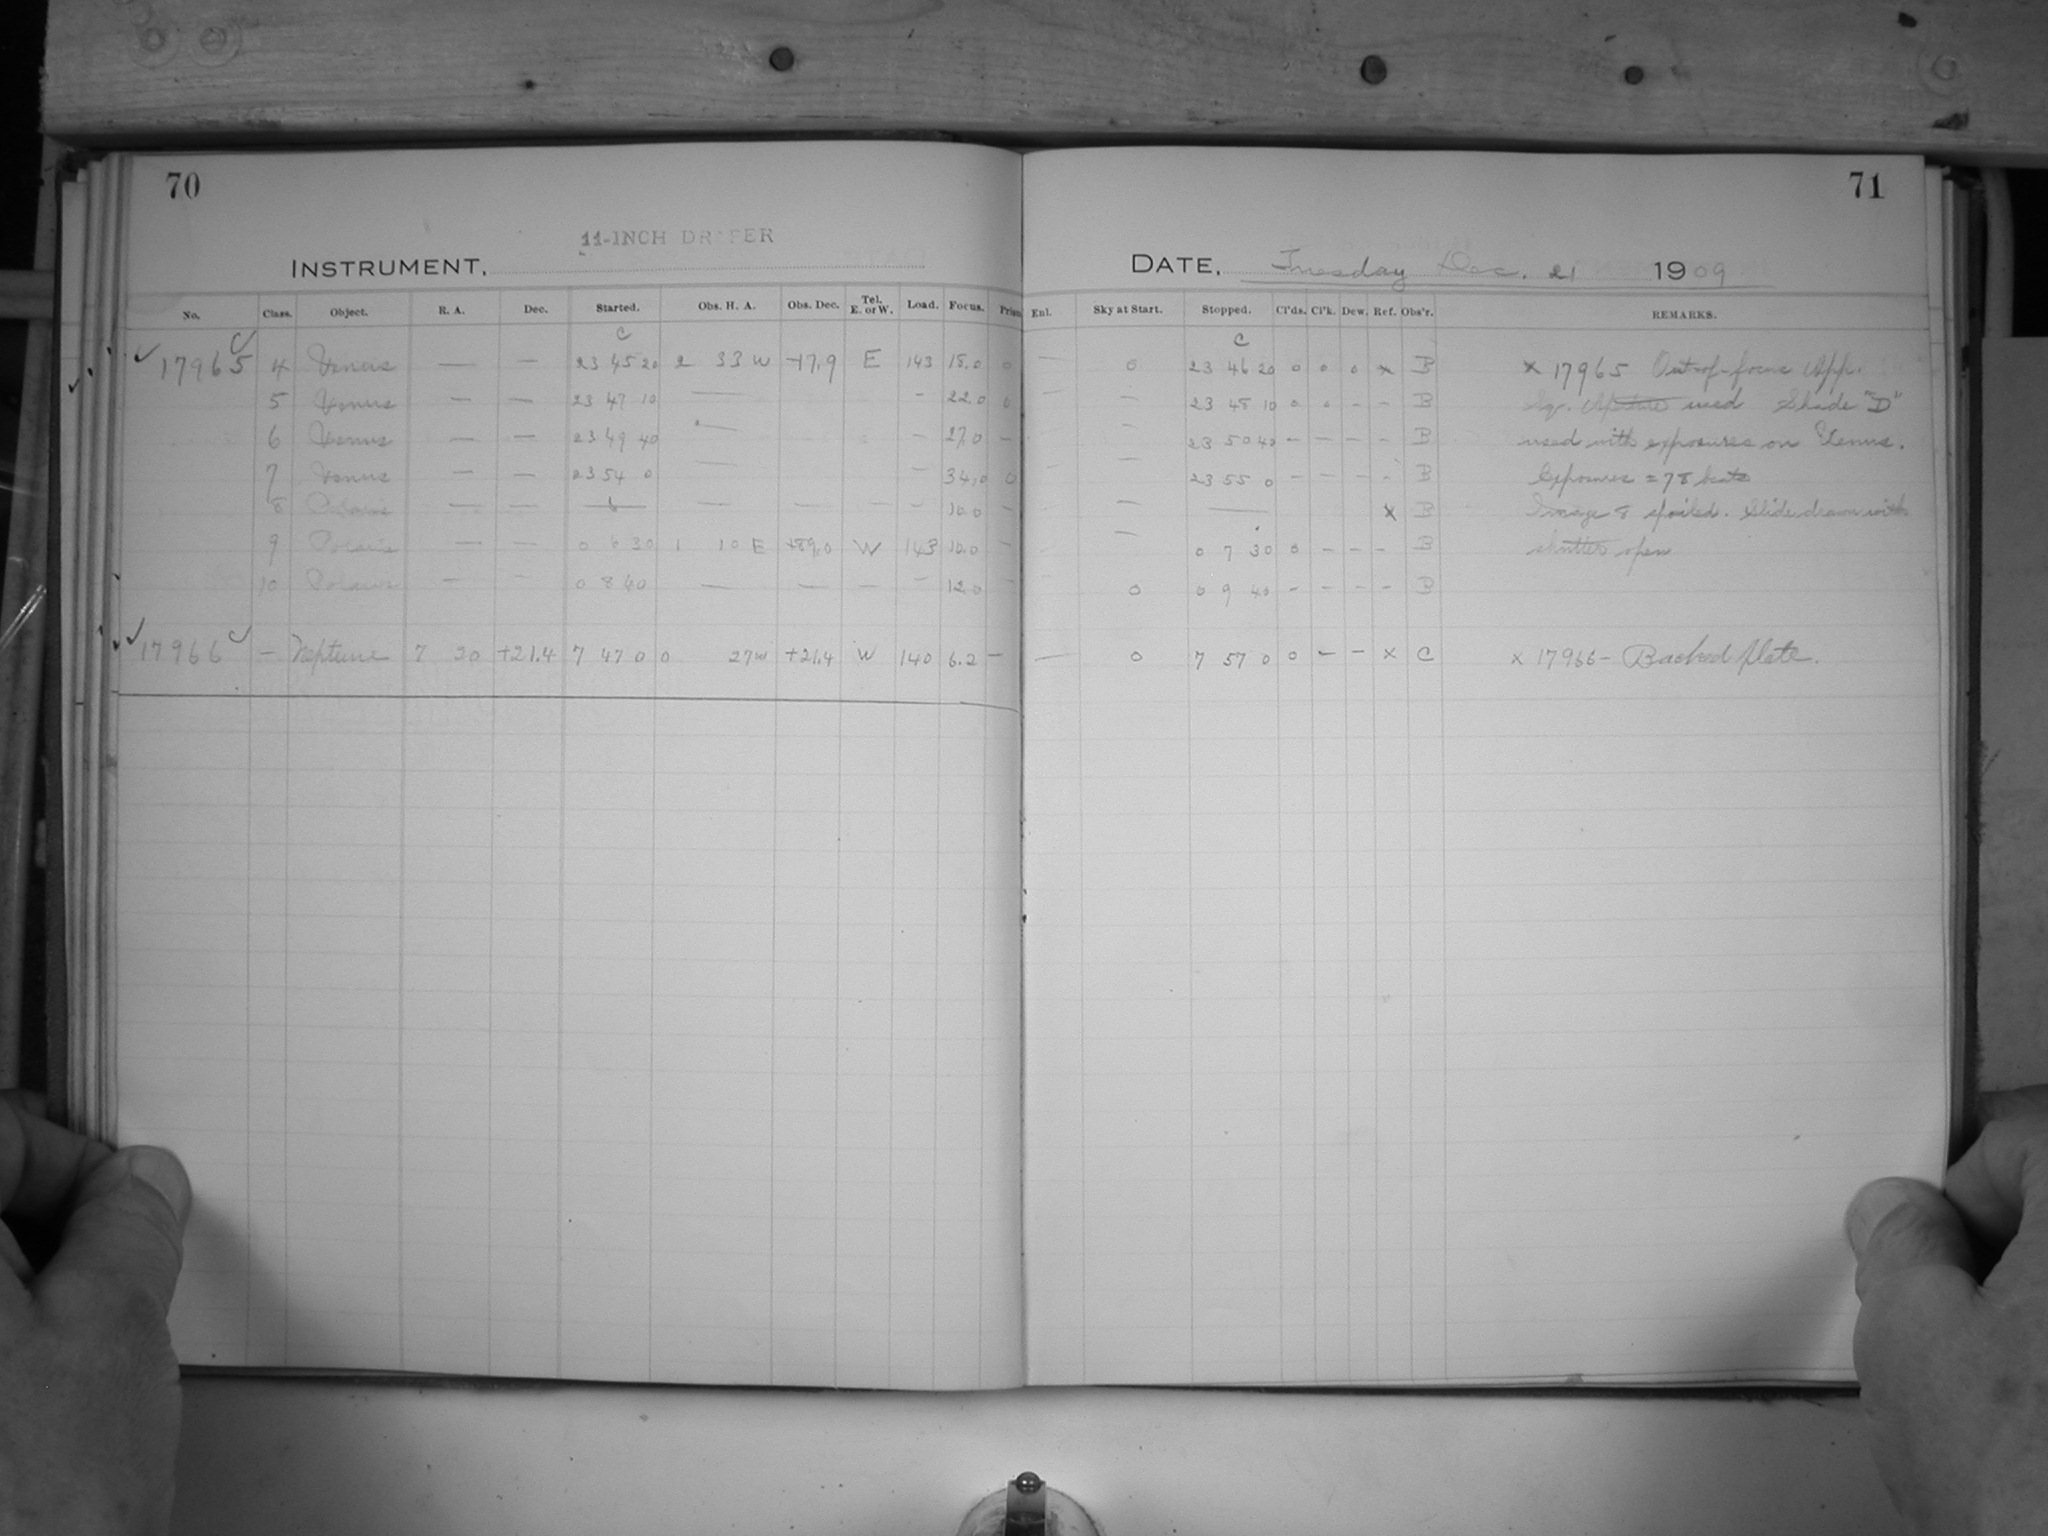 70
11-INCH DRAPER
INSTRUMENT,
No. Class. Object. R. A. Dec. Started. Obs. H. A. Obs. Dec. Tel. E. or W. Load. Focus. Prism
C
✓ 17965 4 Venus — — 23 45 20 2 33 W -17.9 E 143 18.0 0
5 Venus — — 23 47 10 — - 22.0 0
6 Venus — — 23 49 40 — - 27.0 -
7 Venus — — 23 54 0 — - 34.0 0
8 Polaris — — — — — — - 10.0 -
9 Polaris — — 0 6 30 1 10 E +89.0 W 143 10.0 -
10 Polaris - - 0 8 40 — — — - 12.0 -
✓ 17966 - Neptune 7 20 +21.4 7 47 0 0 27 W +21.4 W 140 6.2 -
71
DATE, Tuesday Dec. 21 1909
Enl. Sky at Start. Stopped. Cl'ds. Cl'k. Dew. Ref. Obs'r. REMARKS.
C
— 0 23 46 20 0 0 0 x B x 17965 Out-of-focus App.
— — 23 48 10 0 0 - - B Sq. Aperture used Shade "D"
— — 23 50 40 - - - - B used with exposures on Venus.
— — 23 55 0 - - - - B Exposures = 78 beats
— — — x B Image 8 spoiled. Slide drawn with
— 0 7 30 0 - - - B shutter open
0 0 9 40 - - - - B
— 0 7 57 0 0 - - x C x 17966 - Backed plate.